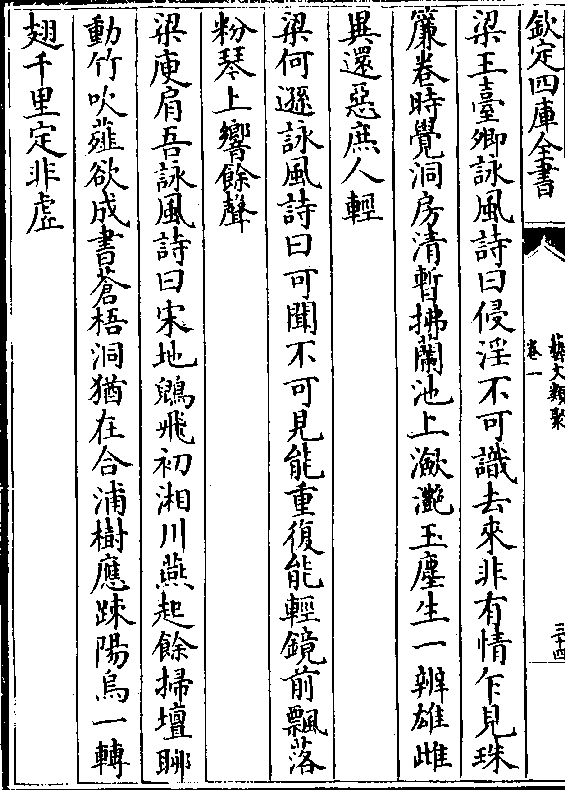 欽定四庫全書
藝文類聚
卷一
三十四
梁王臺卿詠風詩曰侵淫不可識去來非有情乍見珠
簾卷時覺洞房清暫拂蘭池上瀲灔玉塵生一辨雄雌
異還惡庶人輕
梁何遜詠風詩曰可聞不可見能重復能輕鏡前飄落
粉琴上響餘聲
梁庾肩吾詠風詩曰宋地鷁飛初湘川燕起餘掃壇聊
動竹吹薤欲成書蒼梧洞猶在合浦樹應踈陽烏一轉
翅千里定非虛